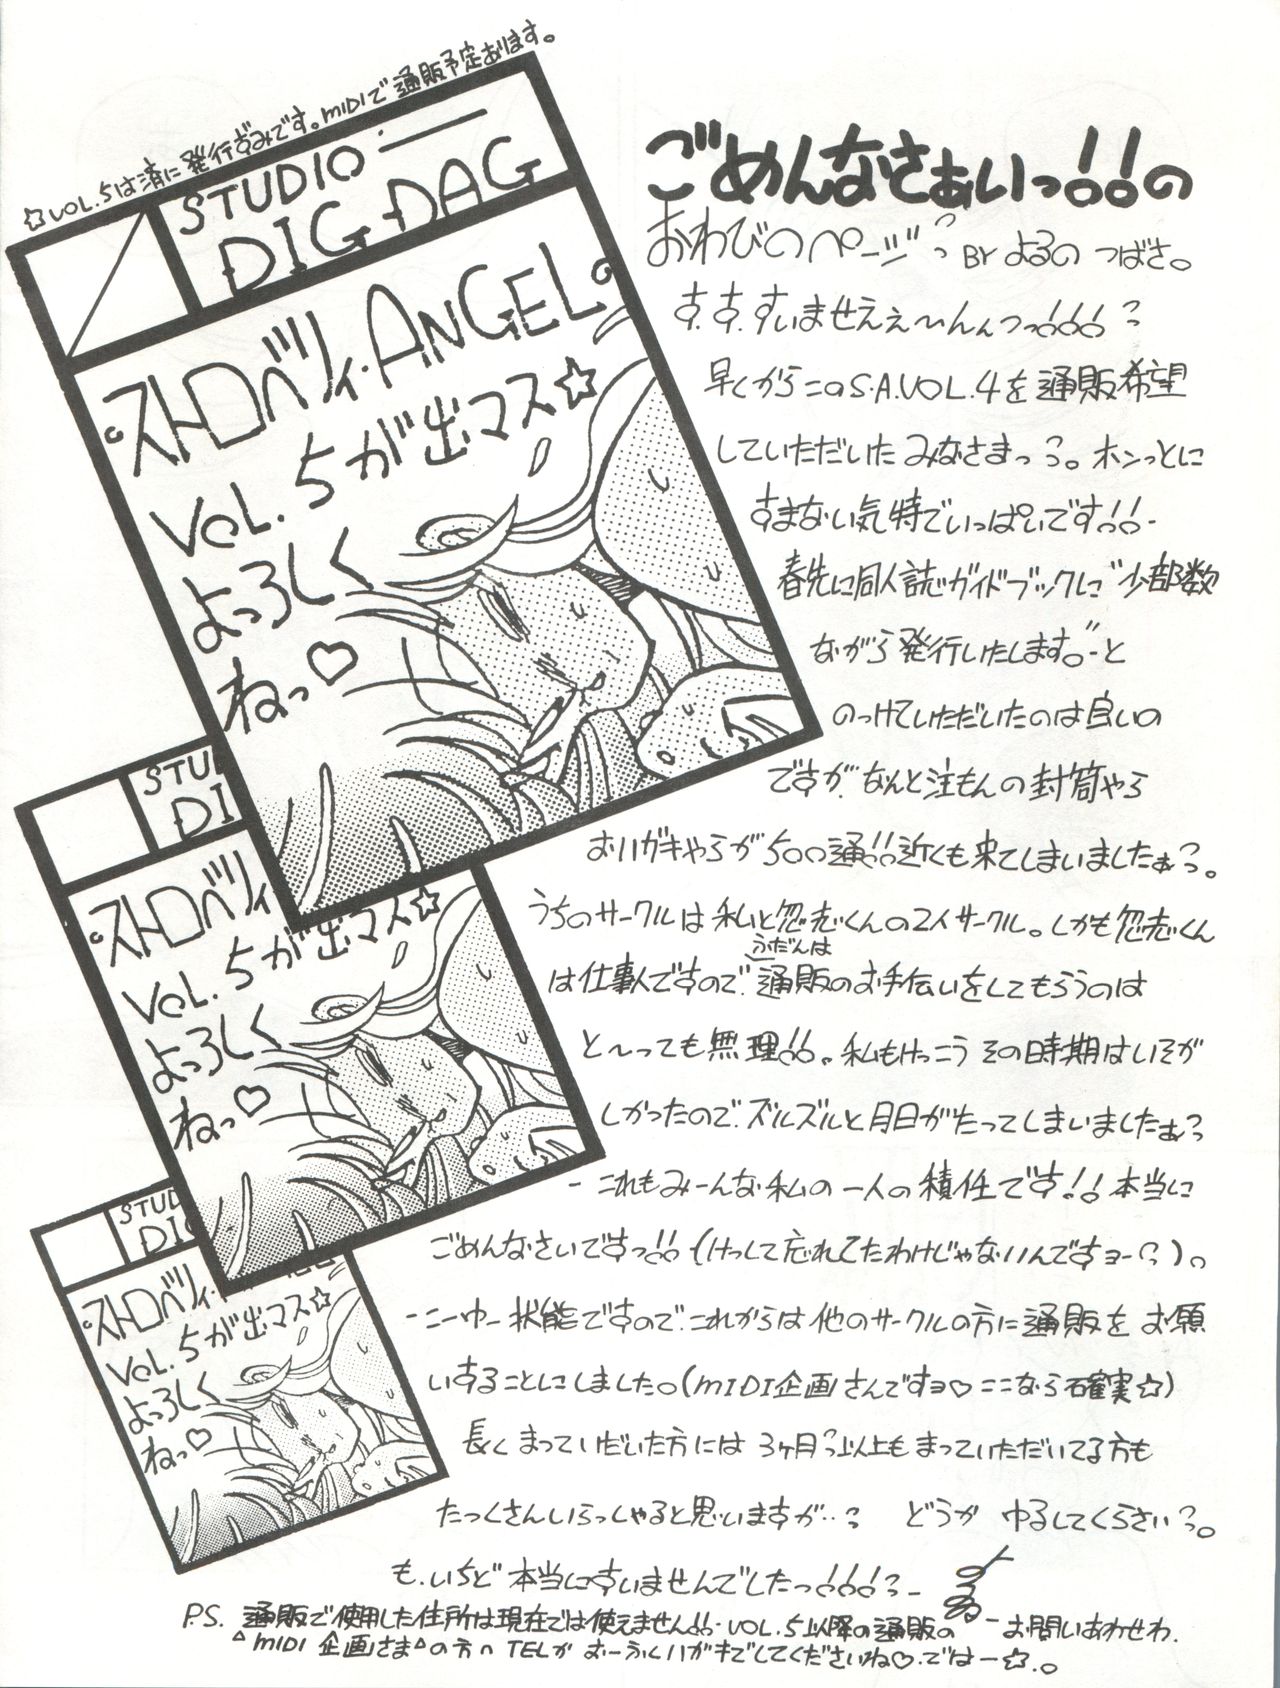 ☆VOL.5は済に発行ずみです。MIDIで通販予定あります。
STUDIO
DIG DAG
ストロベリィ・ANGEL
VOL.5が出マス☆
よっろしく
ねっ♡
ごめんなさぁいっ!!の
おわびのページっ BY よるの つばさ。
す、す、すいませええ〜んんっっ!!!っ
早くからこのS.A.VOL.4を通販希望
していただいたみなさまっっ。ホンっとに
すまない気持でいっぱいです!!
春先に同人誌ガイドブックに"少部数
ながら発行いたします。"と
のっけていただいたのは良いの
ですが、なんと注もんの封筒やら
おハガキやらが500通!!近くも来てしまいましたぁっ。
うちのサークルは私と怱志くんの2人サークル。しかも怱志くん
は仕事人ですので、通販のお手伝いをしてもらうのは
ふだんは
と〜っても無理!!。私もけっこうその時期はいそが
しかったので、ズルズルと月日がたってしまいましたぁっ
これもみーんな私の一人の積任です!!本当に
ごめんなさいですっ!!(けっして忘れてたわけじゃないんですョーっ)。
こーゆー状態ですので、これからは他のサークルの方に通販をお願
いすることにしました。(MIDI企画さんですョ♡ここなら確実☆)
長くまっていただいた方には3ヶ月っ以上もまっていただいてる方も
たっくさんいらっしゃると思いますが…っ どうか ゆるしてくらさいっ。
も、いちど本当にすいませんでしたっ!!!っ
P.S. 通販で使用した住所は現在では使えません!!・VOL.5以降の通販の お問いあわせわ、
MIDI企画さまの方へTELか おーふくハガキでしてくださいね♡。ではー☆。
STU
DI
ストロベリィ
VOL.5が出マス☆
よっろしく
ねっ♡
STUD
DIG
ストロベリィ・
VOL.5が出マス☆
よっろしく
ねっ♡